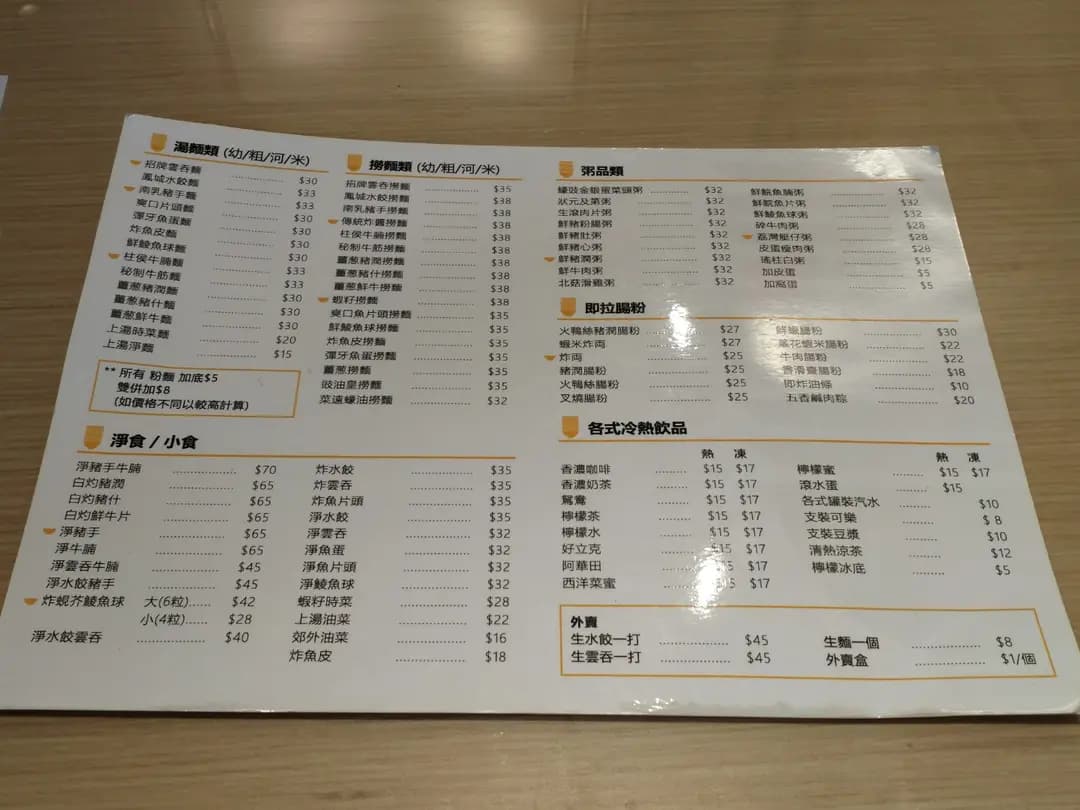 湯麵類 (幼/粗/河/米)
招牌雲吞麵 $30
鳳城水餃麵 $33
南乳豬手麵 $33
爽口片頭麵 $30
彈牙魚蛋麵 $30
炸魚皮麵 $30
鮮鯪魚球麵 $30
柱侯牛腩麵 $33
秘制牛筋麵 $33
薑葱豬潤麵 $30
薑葱豬什麵 $30
薑葱鮮牛麵 $30
上湯時菜麵 $20
上湯淨麵 $15
** 所有 粉麵 加底$5
雙併加$8
(如價格不同以較高計算)
撈麵類 (幼/粗/河/米)
招牌雲吞撈麵 $35
鳳城水餃撈麵 $38
南乳豬手撈麵 $38
傳統炸醬撈麵 $38
柱侯牛腩撈麵 $38
秘制牛筋撈麵 $38
薑葱豬潤撈麵 $38
薑葱豬什撈麵 $38
薑葱鮮牛撈麵 $38
蝦籽撈麵 $38
爽口魚片頭撈麵 $35
鮮鯪魚球撈麵 $35
炸魚皮撈麵 $35
彈牙魚蛋撈麵 $35
薑葱撈麵 $35
豉油皇撈麵 $35
菜遠蠔油撈麵 $32
淨食 / 小食
淨豬手牛腩 $70
白灼豬潤 $65
白灼豬什 $65
白灼鮮牛片 $65
淨豬手 $65
淨牛腩 $65
淨雲吞牛腩 $45
淨水餃豬手 $45
炸蜆芥鯪魚球 大(6粒)...... $42
小(4粒)...... $28
淨水餃雲吞 $40
炸水餃 $35
炸雲吞 $35
炸魚片頭 $35
淨水餃 $35
淨雲吞 $32
淨魚蛋 $32
淨魚片頭 $32
淨鯪魚球 $32
蝦籽時菜 $28
上湯油菜 $22
郊外油菜 $16
炸魚皮 $18
粥品類
蠔豉金銀蛋菜頭粥 $32
狀元及第粥 $32
生滾肉片粥 $32
鮮豬粉腸粥 $32
鮮豬肚粥 $32
鮮豬心粥 $32
鮮豬潤粥 $32
鮮牛肉粥 $32
北菇滑雞粥 $32
鮮鯇魚腩粥 $32
鮮鯇魚片粥 $32
鮮鯪魚球粥 $32
碎牛肉粥 $28
荔灣艇仔粥 $28
皮蛋瘦肉粥 $28
瑤柱白粥 $15
加皮蛋 $5
加鹹蛋 $5
即拉腸粉
火鴨絲豬潤腸粉 $27
蝦米炸両 $27
炸両 $25
豬潤腸粉 $25
火鴨絲腸粉 $25
叉燒腸粉 $25
鮮蝦腸粉 $30
葱花蝦米腸粉 $22
牛肉腸粉 $22
香滑齋腸粉 $18
即炸油條 $10
五香鹹肉粽 $20
各式冷熱飲品
熱 凍
香濃咖啡 $15 $17
香濃奶茶 $15 $17
鴛鴦 $15 $17
檸檬茶 $15 $17
檸檬水 $15 $17
好立克 $15 $17
阿華田 $15 $17
西洋菜蜜 $15 $17
熱 凍
檸檬蜜 $15 $17
滾水蛋 $15
各式罐裝汽水 $10
支裝可樂 $ 8
支裝豆漿 $10
清熱涼茶 $12
檸檬冰底 $5
外賣
生水餃一打 $45
生雲吞一打 $45
生麵一個 $8
外賣盒 $1/個